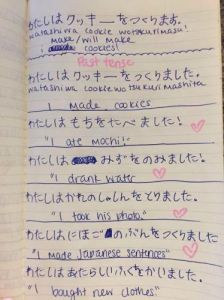 わたしはクッキーをつくります。
watashiwa cookie wotsukurimasu!
make/will make
i cookies!
Past tense
わたしはクッキーをつくりました。
watashiwa cookie wo tsukuri mashita
I made cookies
わたしはもちをたべました!
"I ate mochi!"
わたしは みずをのみました!
"I drank water
わたしはかれのしゃしんをとりました。
"I took his photo."
わたしはにほごのぶんをつくりました
"I made Japanese sentences"
わたしはあたらしいふくをかいました。
"I bought new clothes."